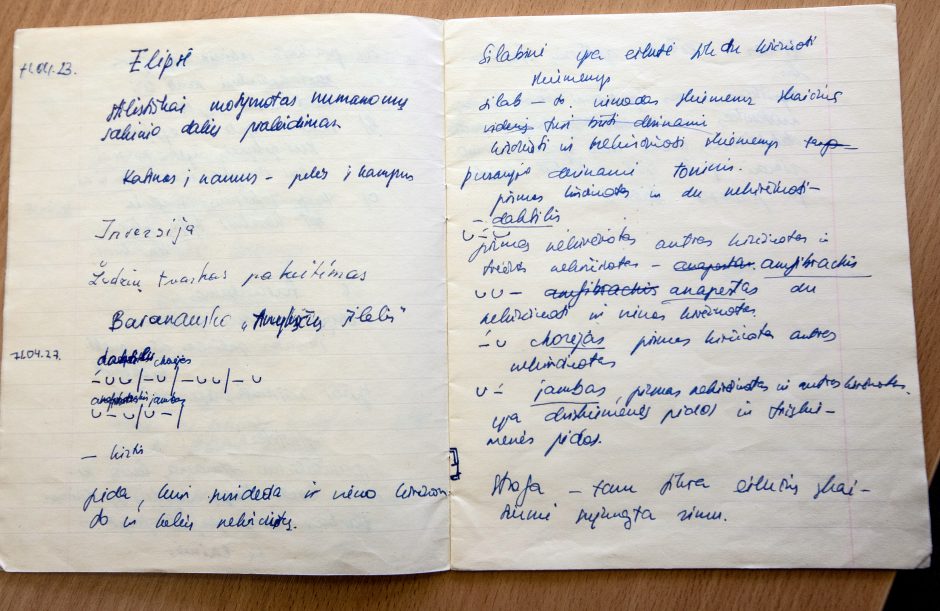 71.04.23. Elipsė
stilistiškai motyvuotas numanomų
sakinio dalių praleidimas
Katinas į namus – pelės į kampus
Inversija
Žodžių tvarkos pakeitimas
Baranausko „Anykščių šilelis"
71.04.27.
chorėjas
– ∪ ∪ / – ∪ / – ∪ ∪ / – ∪
jambas
∪ – ∪ / ∪ – /
– kirtis
pėda, kuri susideda iš vieno kirčiuo
to ir kelių nekirčiuotų.
Silabinė yra eilutė žodžių kirčiuoti
skiemenys
silab – to. vienodas skiemenų skaičius
turi būti derinami
kirčiuoti ir nekirčiuoti skiemenys
derinami toninis.
pirmas kirčiuotas ir du nekirčiuoti –
– daktilis
∪ – ∪
pirmas nekirčiuotas antras kirčiuotas ir
trečias nekirčiuotas – amfibrachis
∪ ∪ – amfibrachis anapestas du
nekirčiuoti ir vienas kirčiuotas.
– ∪ chorėjas pirmas kirčiuotas antras
nekirčiuotas
∪ – jambas, pirmas nekirčiuotas ir antras kirčiuotas.
yra dviskiemenės pėdos ir triskie-
menės pėdos.
Strofa – tam tikra eilučių skai-
čiumi sujungta